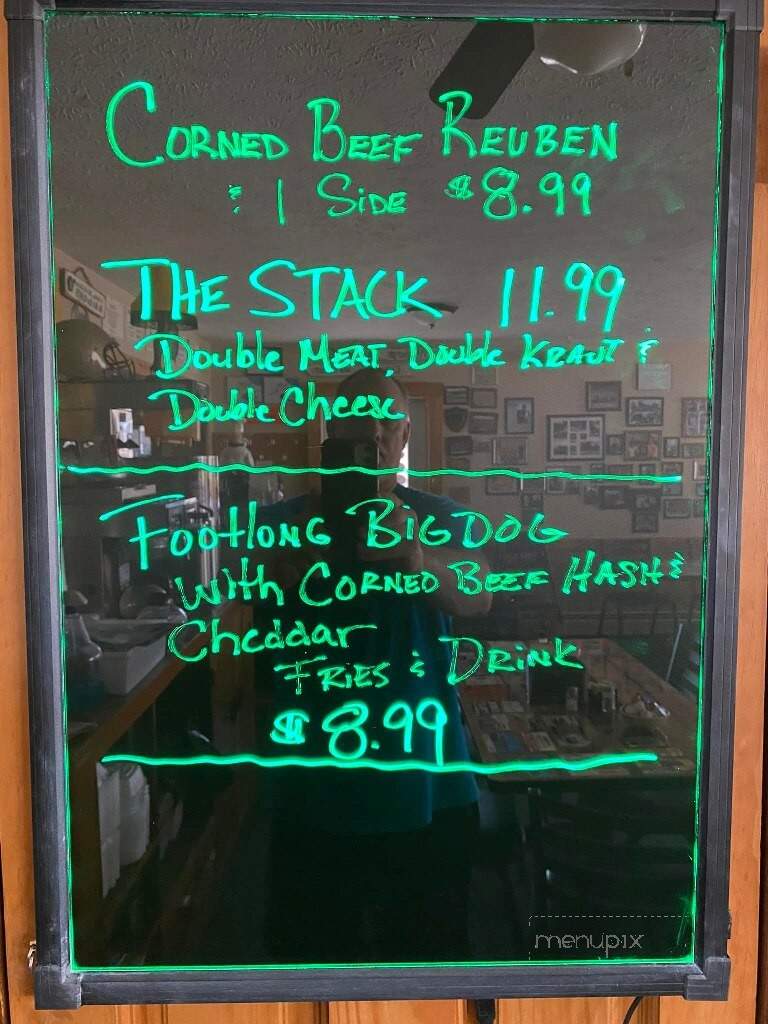 CORNED BEEF REUBEN
& 1 SIDE $8.99
THE STACK 11.99
DOUBLE MEAT, DOUBLE KRAUT &
DOUBLE CHEESE
FOOTLONG BIG DOG
WITH CORNED BEEF HASH &
CHEDDAR
FRIES & DRINK
$8.99
menupix